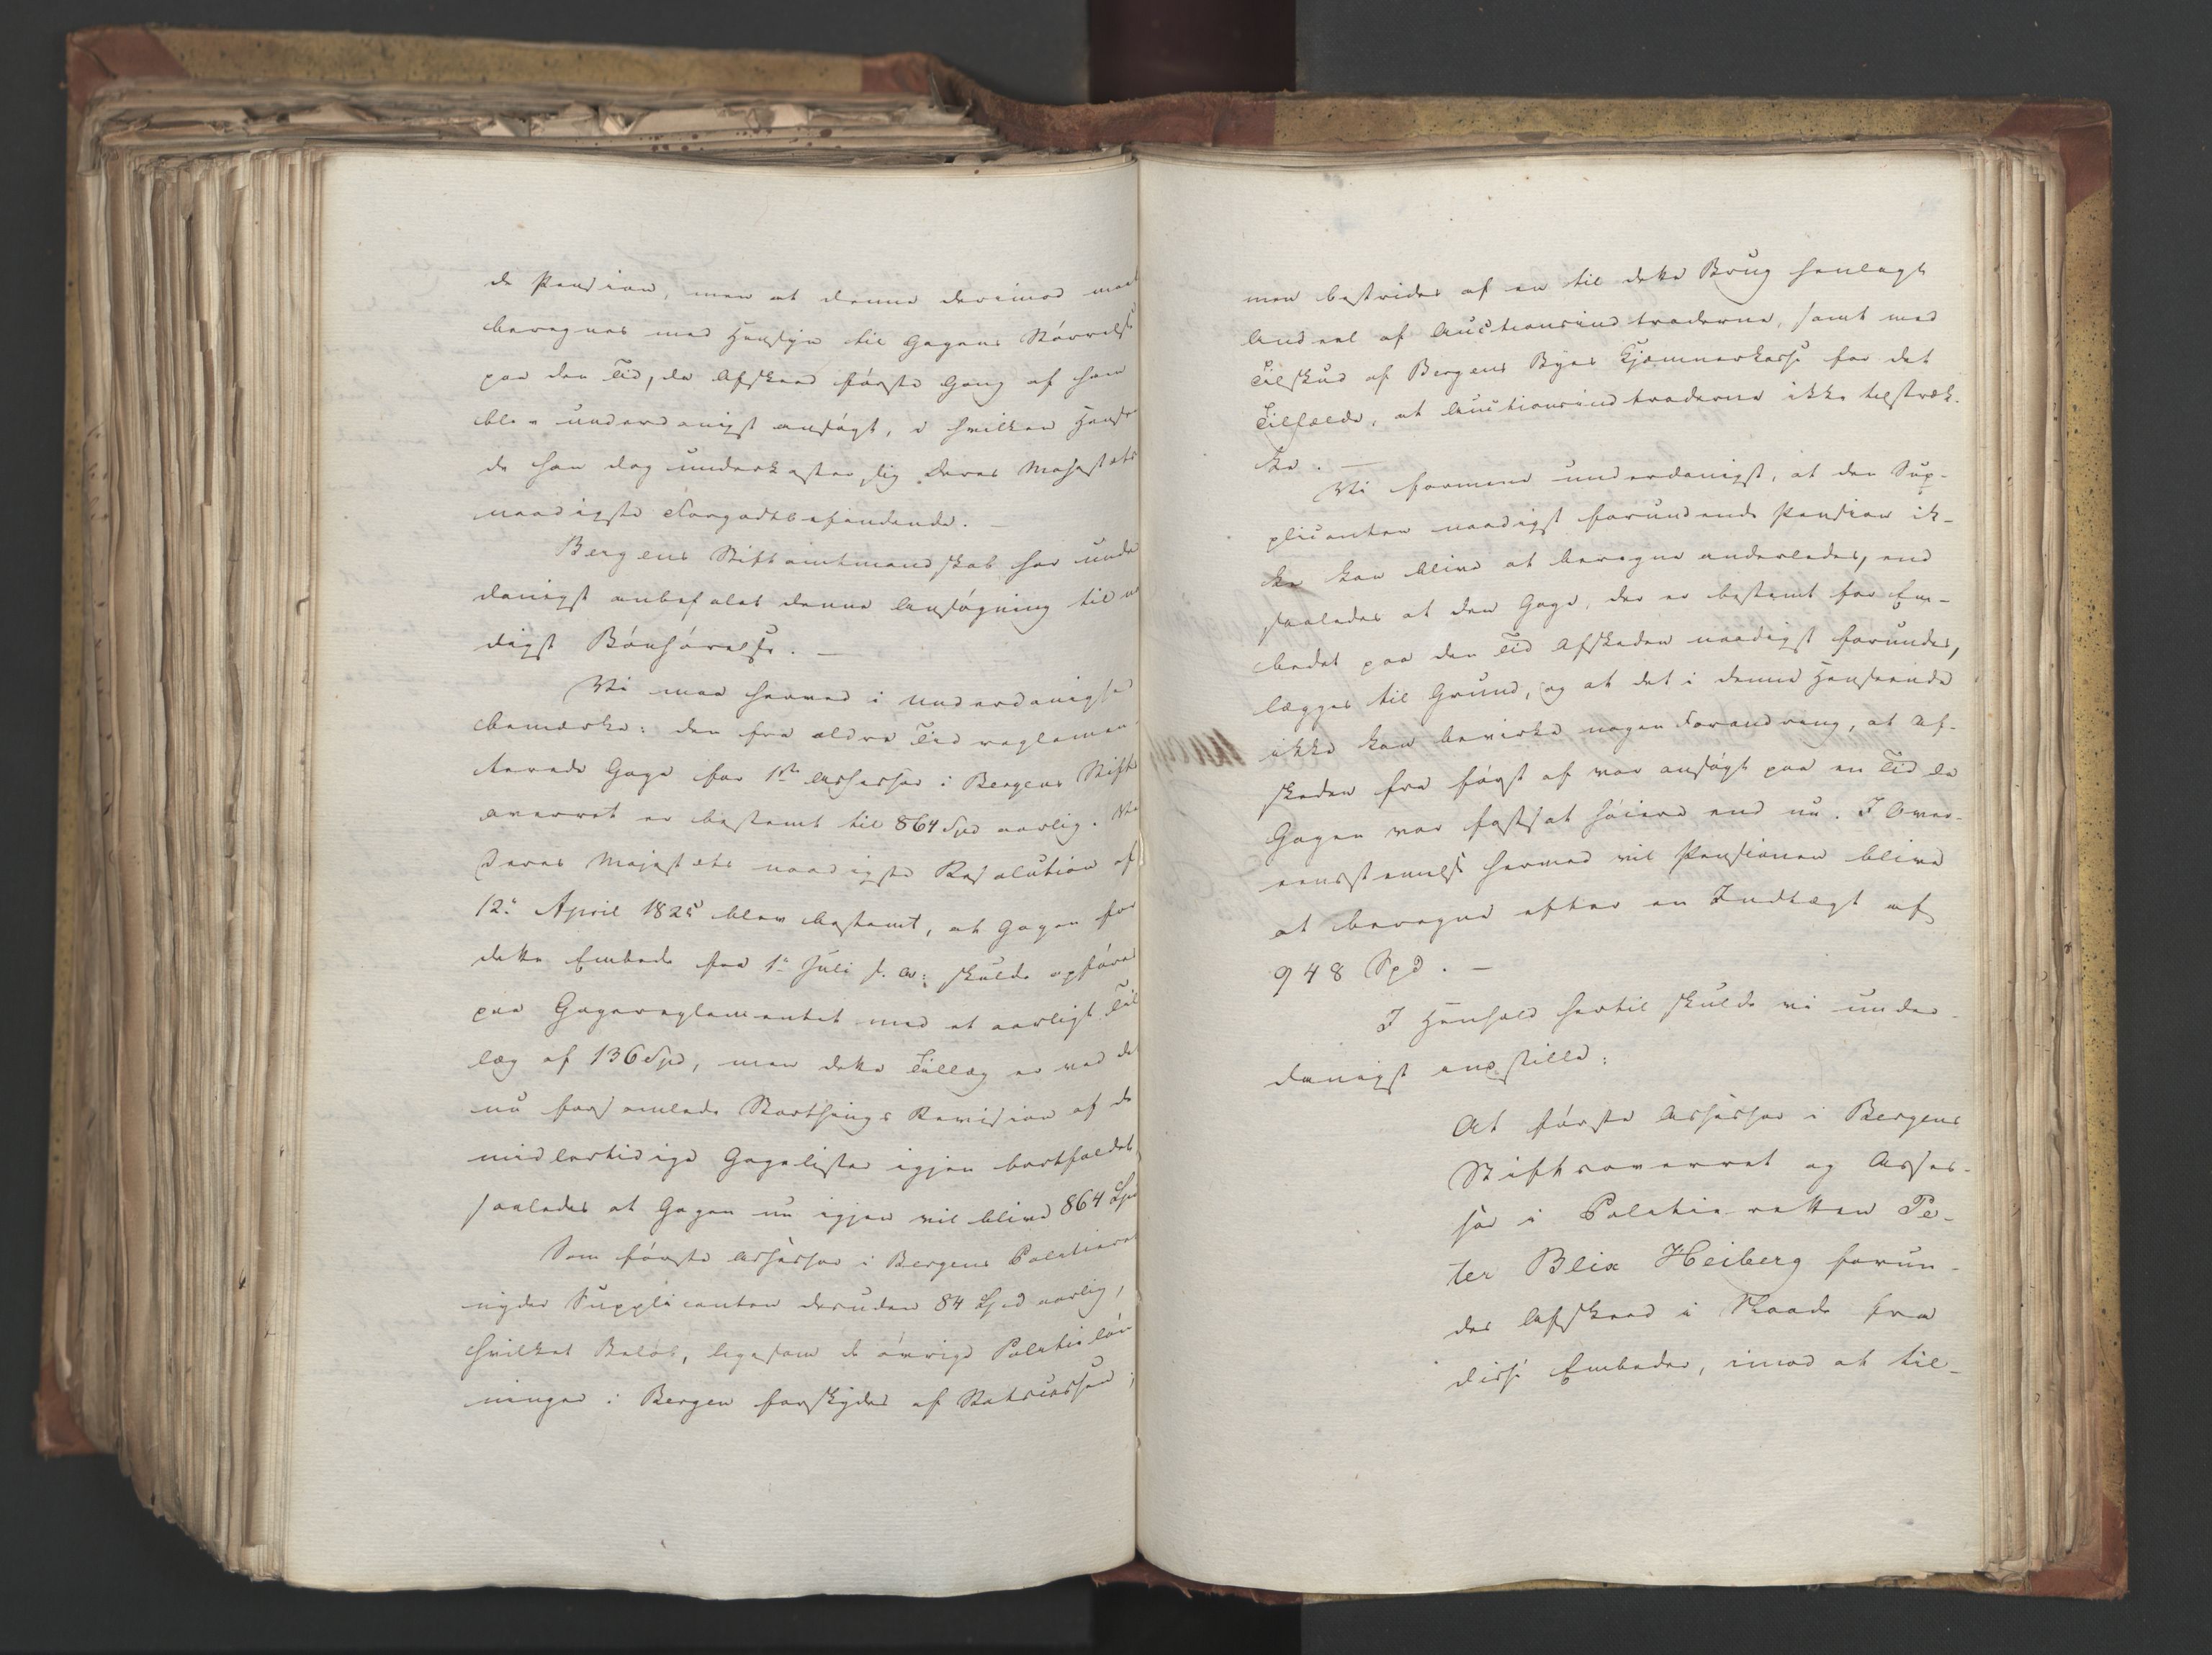 de Pension, men at denne derimod maat
beregnes med Hensyn til Gagens Størrelse
paa den Tid, da Afskeed første Gang af ham
blev underdanigst ansøgt, i hvilken Hense
de han dog underkaster sig Deres Majestæts
naadigste Forgodtbefindende. —
Bergens Stiftamtmandskab har unde
danigst anbefalet denne Ansøgning til n
digst Bønhørelse. —
Vi maa herved i Underdanighed
bemærke: den fra ældre Tid reglemen
terede Gage for 1ste Assessor i Bergens Stifts
overret er bestemt til 864 Spd aarlig. Ve
Deres Majestæts naadigste Resolution af
12te April 1825 blev bestemt, at Gagen for
dette Embede fra 1te Juli s. A. skulde opføres
paa Gagereglementet med et aarligt Til
læg af 136 Spd, men dette Tillæg er ved det
nu forsamlede Storthings Revision af de
midlertidige Gagelister igjen bortfaldet,
saaledes at Gagen nu igjen vil blive 864 Spd
Som første Assessor i Bergens Politieret
nyder Supplicanten desuden 84 Spd aarlig,
hvilket Beløb, ligesom de øvrige Politieløn
ninger i Bergen forskydes af Statscassen;
men bestrides af en til dette Brug henlagt
Andeel af Auctionsindtraderne, samt med
Tilskud af Bergens Byes Kjæmnerkasse for det
Tilfælde, at Auctionsindtraderne ikke tilstræk-
ke. —
Vi formene underdanigst, at den Sup-
plicanten naadigst forundende Pension ik-
ke kan blive at beregne anderledes, end
saaledes at den Gage, der er bestemt for Em-
bedet paa den Tid Afskeden naadigst forundes,
lægges til Grund, og at det i denne Henseende
ikke kan bevirke nogen Forandring, at Af-
skeden fra først af var ansøgt paa en Tid da
Gagen var fastsat høiere end nu. I Over-
eensstemmelse hermed vil Pensionen blive
at beregne efter en Indtægt af
948 Spd. —
I Henhold hertil skulde vi under-
danigst indstille:
At første Assessor i Bergens
Stiftsoverret og Asses-
sor i Politieretten Pe-
ter Blix Heiberg forun-
des Afskeed i Naade fra
disse Embeder, imod at til-